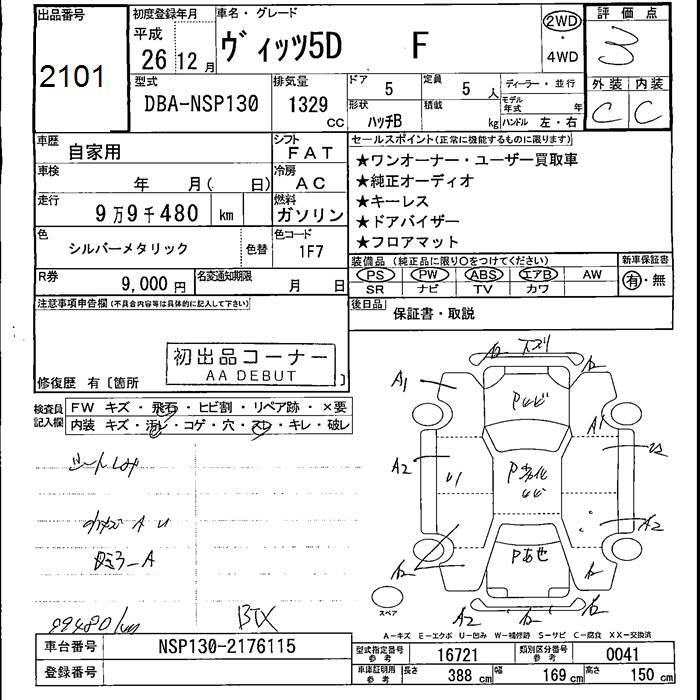 出品番号
2101
初度登録年月
平成
26 12 月
車名・グレード
ヴィッツ5D F
2WD
・
4WD
評価点
3
外装 内装
C C
型式
DBA-NSP130
排気量
1329
CC
ドア
5
定員
5 人
形状
ハッチB
積載
kg
ディーラー・並行
モデル
年式
年
ハンドル 左・右
車歴
自家用
シフト
FAT
車検
年 月( 日)
冷房
AC
走行
9万9千480 km
燃料
ガソリン
色
シルバーメタリック
色替
色コード
1F7
R券
9,000 円
名変通知期限
月 日
セールスポイント(正常に機能するものに限ります)
★ワンオーナー・ユーザー買取車
★純正オーディオ
★キーレス
★ドアバイザー
★フロアマット
装備品 (純正品に限り○をつけてください)
PS PW ABS エアB AW
SR ナビ TV カワ
新車保証書
有・無
後日品
保証書・取説
注意事項申告欄(不具合内容等は具体的に記入して下さい)
初出品コーナー
AA DEBUT
修復歴 有〔箇所 〕
検査員
記入欄
FW キズ・飛石・ヒビ割・リペア跡・×要
内装 キズ・汚レ・コゲ・穴・スレ・キレ・破レ
A1
A1
A2
A2
A2
スペア
99480km
BTX
A-キズ E-エクボ U-凹み W-補修跡 S-サビ C-腐食 XX-交換済
車台番号
NSP130-2176115
登録番号
型式指定番号
参考
16721
類別区分番号
参考
0041
車庫証明用
参考
長さ
388 cm
幅
169 cm
高さ
150 cm